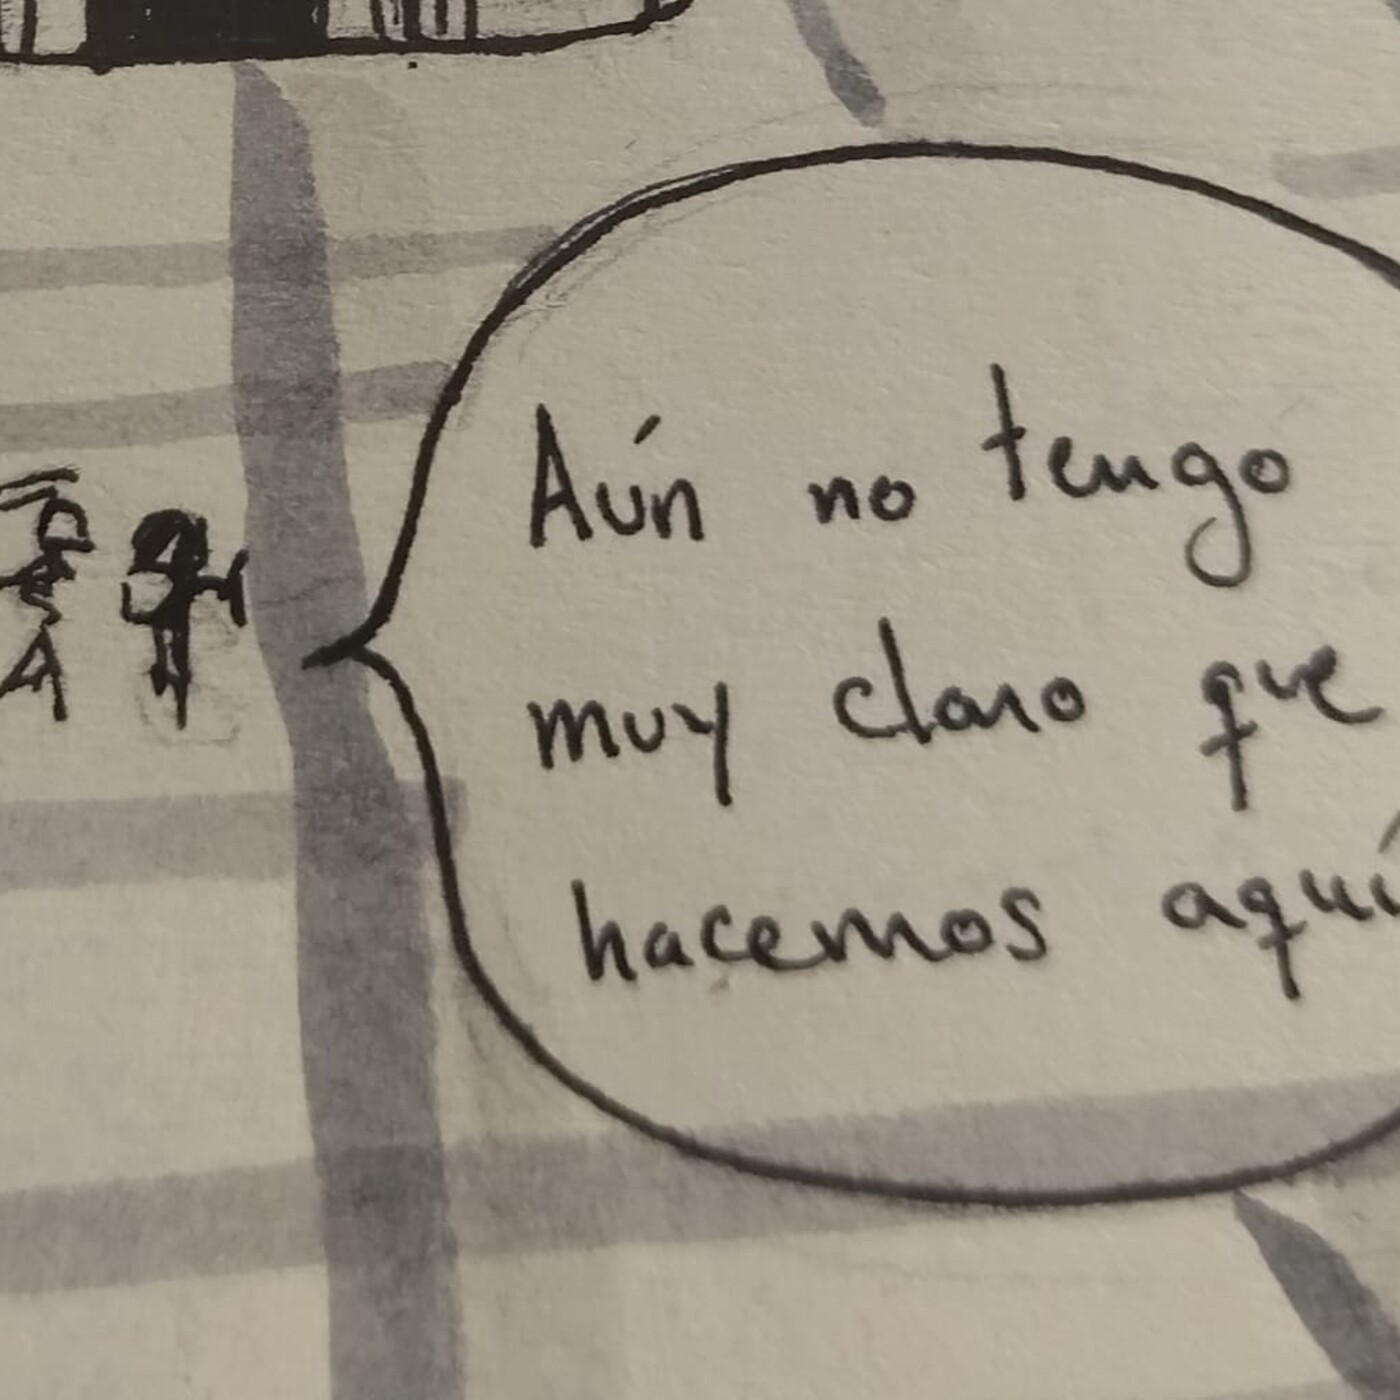 Aún no tengo
muy claro que
hacemos aquí